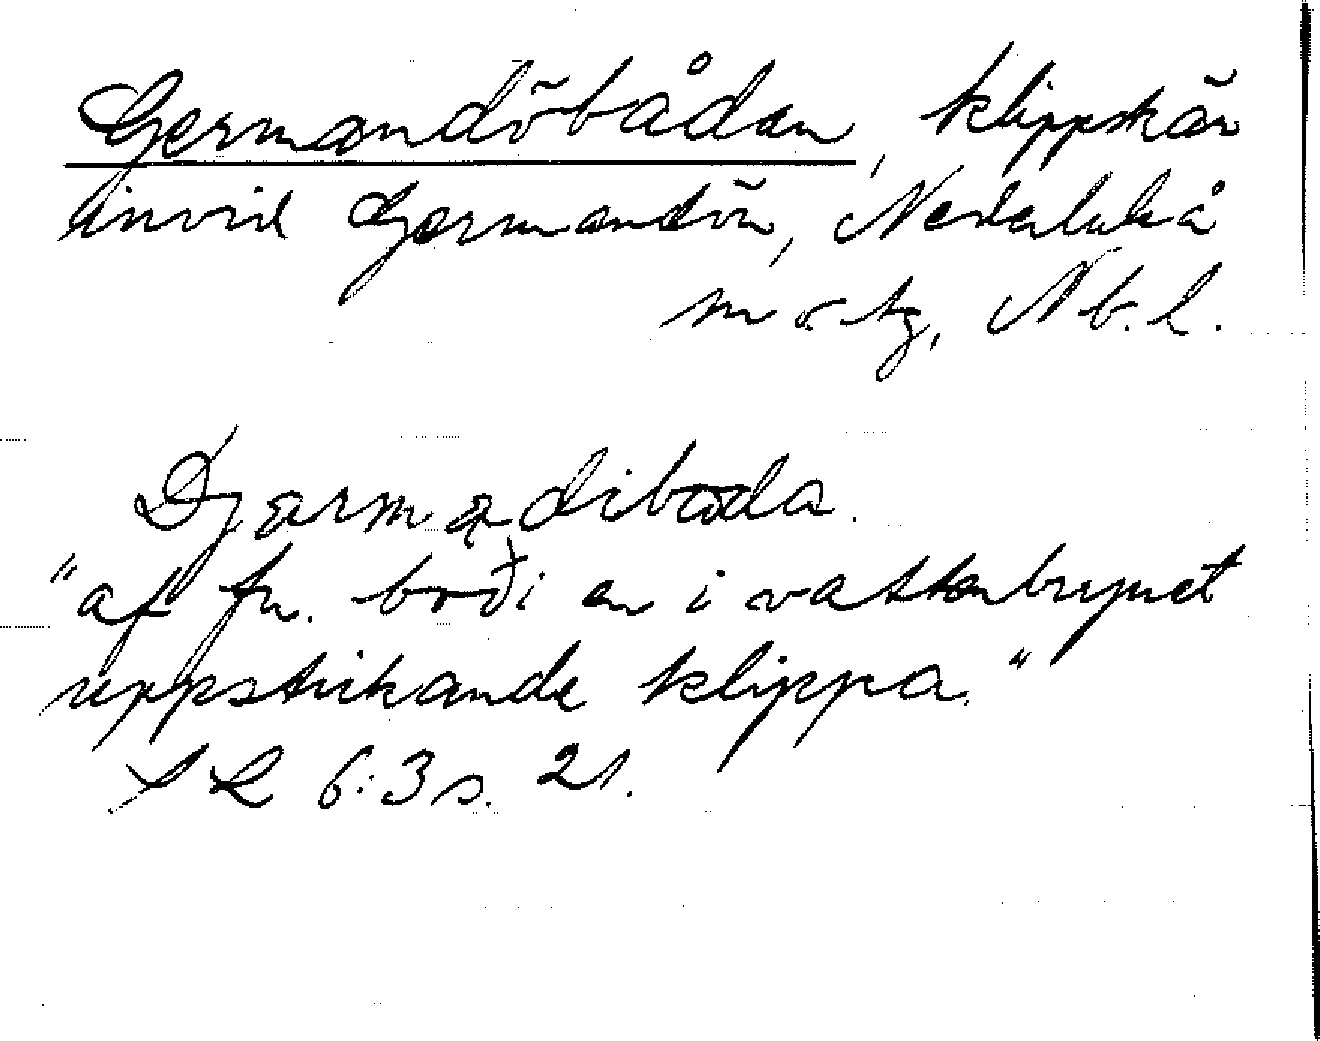 Germandöbådan, klippskär
invid Germandön, Nederluleå
m o tg, Nb. l.
Djarmądiboda.
"af fn. boði en i vattenbrynet
uppstickande klippa."
SL 6:3 s. 21.